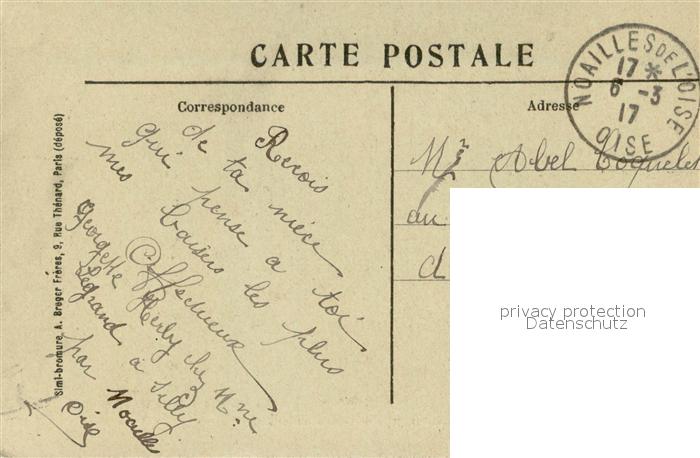 CARTE POSTALE
Correspondance
Reçois
de ta nièce
qui pense a toi
mes baisers les plus
affectueux
Georgette Herly chez Mme
Legrand à Silly
par Noailles
Oise
Simi-bromure, A. Breger Frères, 9, Rue Thénard, Paris (déposé)
Adresse
NOAILLES DE L'OISE
17 *
6 -3
17
OISE
Mr Abel
au
d
privacy protection
Datenschutz